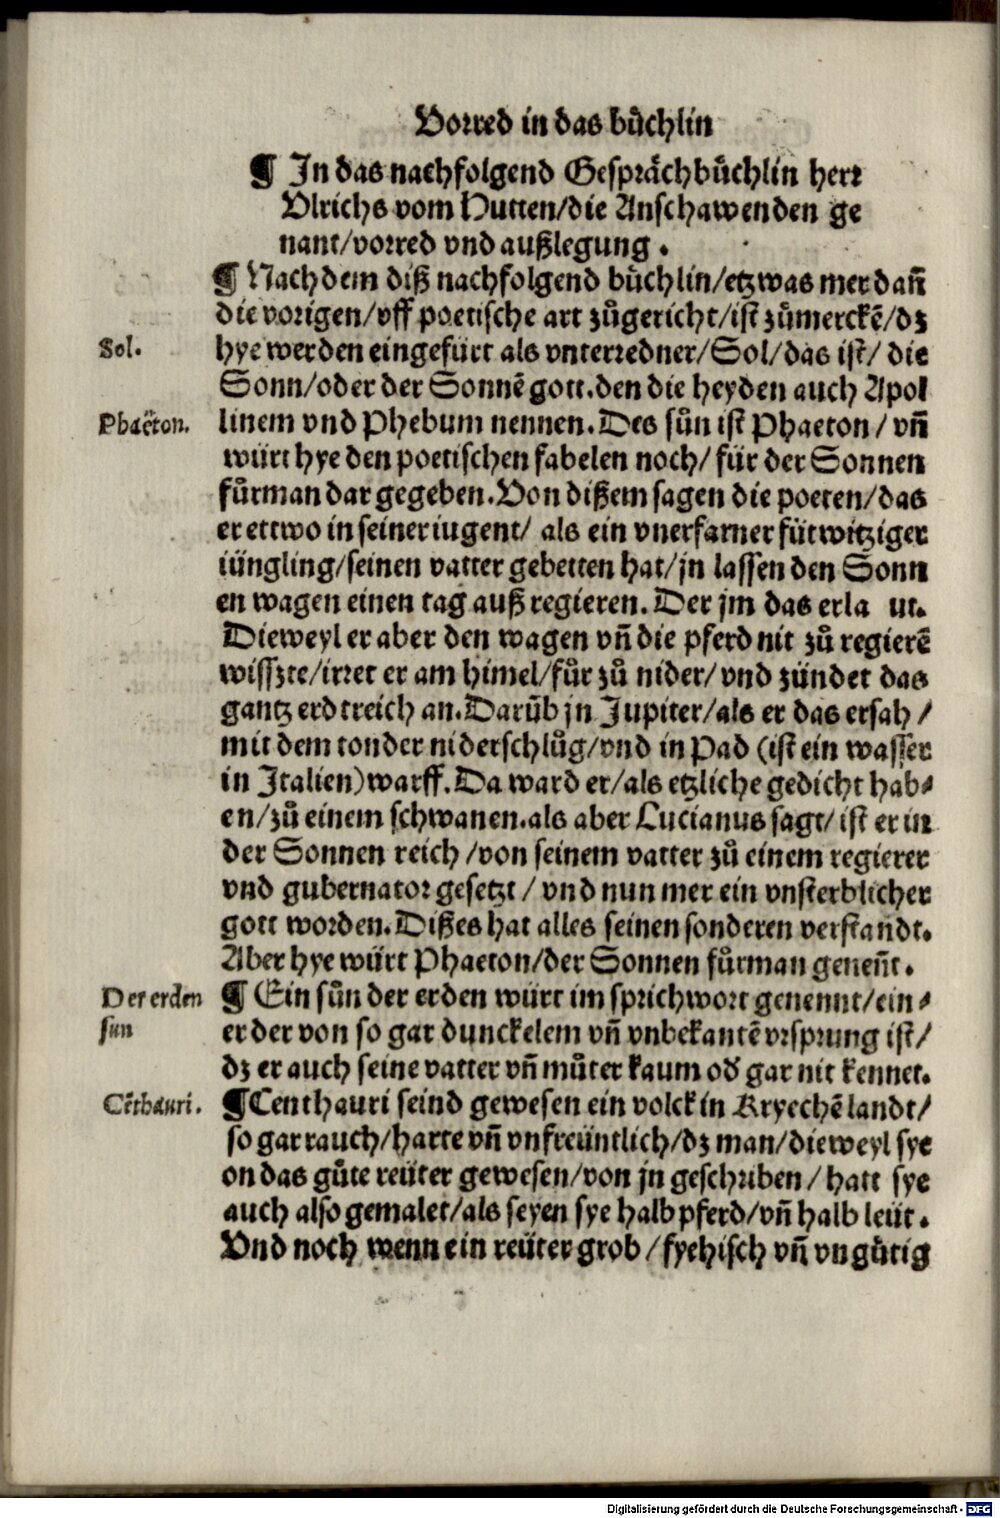 Vorred in das bůchlin
¶ In das nachfolgend Gesprächbůchlin herr
Vlrichs vom Hutten/die Anschawenden ge
nant/vorred vnd außlegung.
¶ Nach dem diß nachfolgend bůchlin/etzwas mer dañ
die vorigen/vff poetische art zůgericht/ist zůmerckẽ/dz
Sol.
hye werden eingefürt als vnterredner/Sol/das ist/ die
Sonn/oder der Sonnẽ gott.den die heyden auch Apol
Phaëton.
linem vnd Phebum nennen.Des sůn ist Phaeton/ vñ
würt hye den poetischen fabelen noch/ für der Sonnen
fůrman dar gegeben.Von dißem sagen die poeten/das
er ettwo in seiner iugent/ als ein vnerfarner fürwitziger
iüngling/seinen vatter gebetten hat/jn lassen den Sonn
en wagen einen tag auß regieren. Der jm das erla ut.
Dieweyl er aber den wagen vñ die pferd nit zů regierẽ
wisszte/irret er am himel/fůr zů nider/vnd zündet das
gantz erdtreich an.Darũb jn Jupiter/als er das ersah/
mit dem tonder niderschlůg/vnd in Pad (ist ein wasser
in Italien)warff.Da ward er/als etzliche gedicht hab⸗
en/zů einem schwanen.als aber Lucianus sagt/ ist er in
der Sonnen reich/von seinem vatter zů einem regierer
vnd gubernator gesetzt/ vnd nun mer ein vnsterblicher
gott worden.Dißes hat alles seinen sonderen verstandt.
Aber hye würt Phaeton/der Sonnen fůrman geneñt.
Der erden
¶ Ein sůn der erden würt im sprichwort genennt/ein⸗
sun
er der von so gar dunckelem vñ vnbekantẽ vrsprung ist/
dz er auch seine vatter vñ můter kaum od̛ gar nit kennet.
Cẽthauri.
¶Centhauri seind gewesen ein volck in Kryechẽ landt/
so gar rauch/harte vñ vnfreüntlich/dz man/dieweyl sye
on das gůte reüter gewesen/von jn geschriben/ hatt sye
auch also gemalet/als seyen sye halb pferd/vñ halb leüt.
Vnd noch wenn ein reüter grob/fyehisch vñ vngůtig
Digitalisierung gefördert durch die Deutsche Forschungsgemeinschaft - DFG